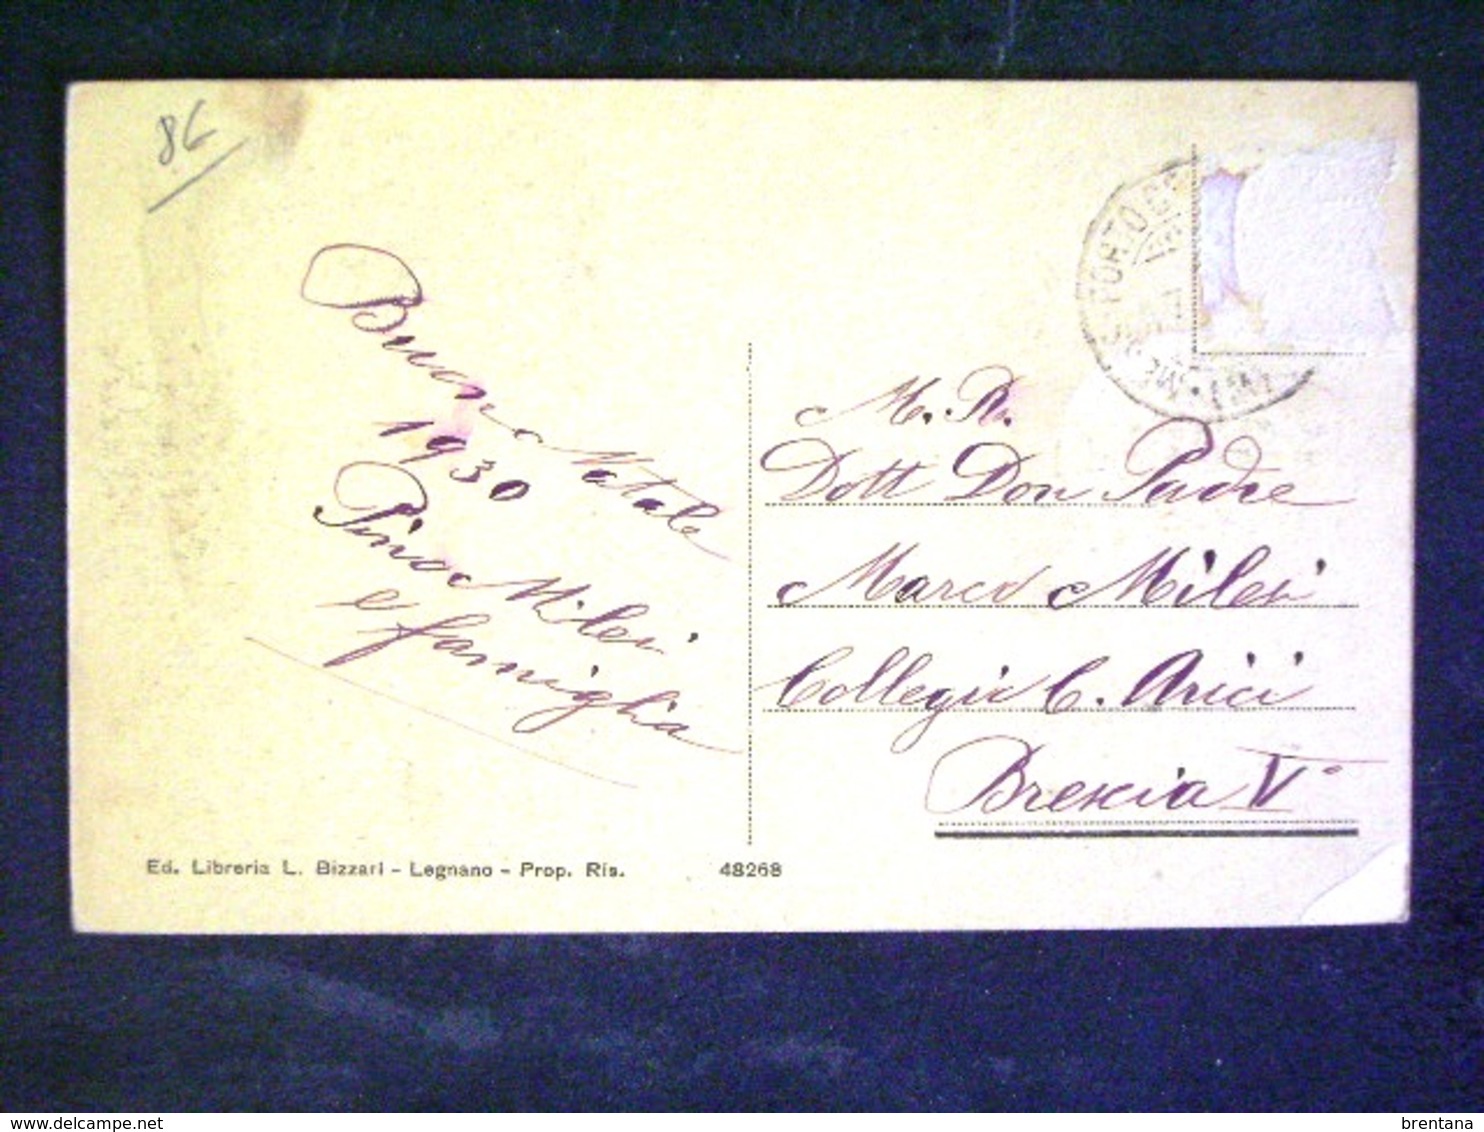 86
Buon Natale
1930
Pino Milesi
e famiglia
M. R.
Dott Don Padre
Marco Milesi
Collegio C. Arici
Brescia Vº
Ed. Libreria L. Bizzari - Legnano - Prop. Ris. 48268
brentana